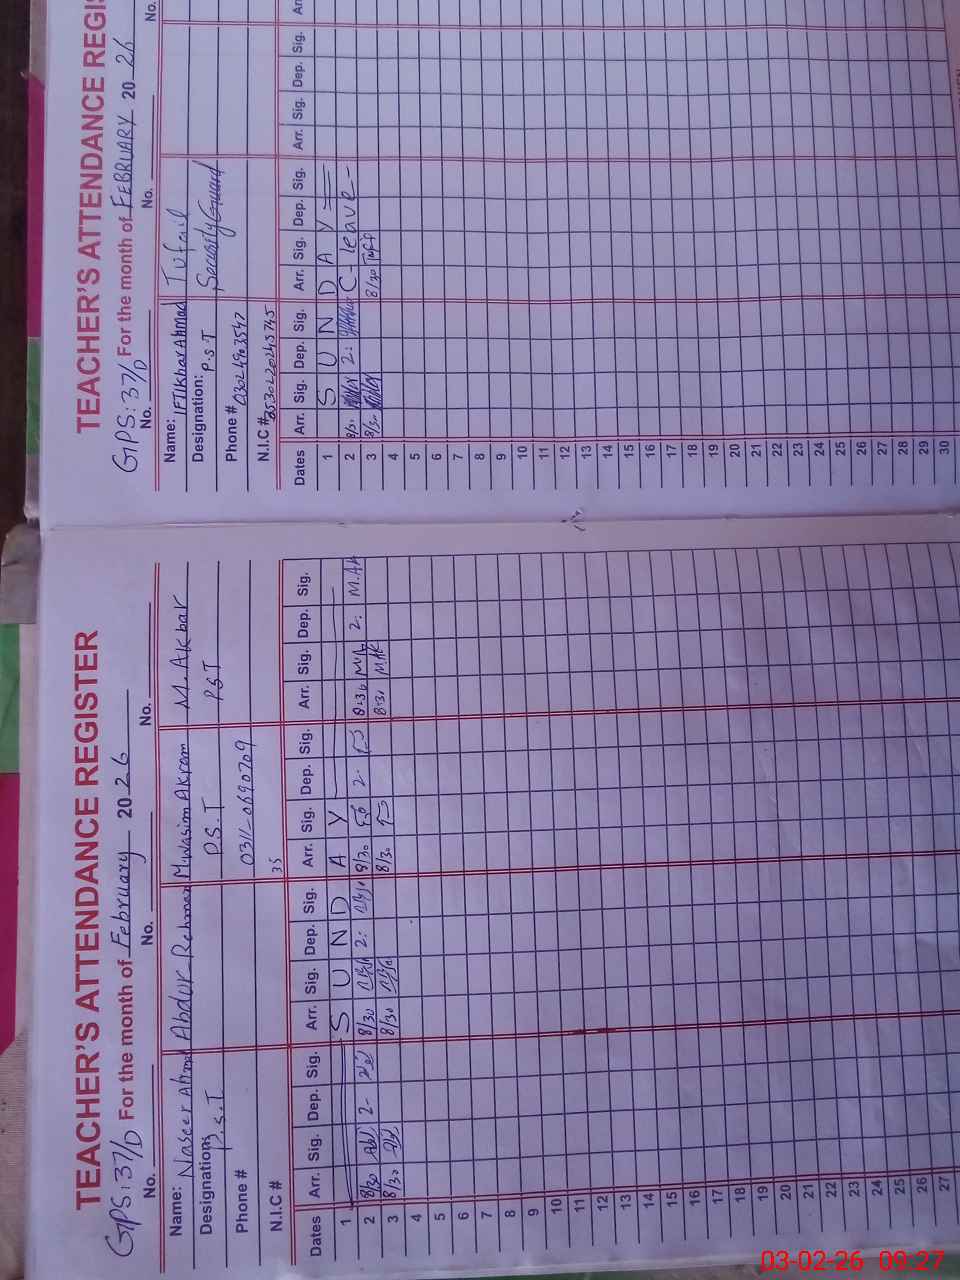 TEACHER'S ATTENDANCE REGISTER
GPS: 37/D For the month of February 2026
No. No. No. No.
Name: Naseer Ahmad Abdur Rehman M. Wasim Akram M. Akbar
Designations P.S.T P.S.T PST
Phone # 0311-0690709
N.I.C # 35
Dates Arr. Sig. Dep. Sig. Arr. Sig. Dep. Sig. Arr. Sig. Dep. Sig. Arr. Sig. Dep. Sig.
1 S U N D A Y
2 8/30 2- 8/30 2: 8/30 2- 8:30 2: M.AK
3 8/30 8/30 8/30 8:30 MAK
4
5
6
7
8
9
10
11
12
13
14
15
16
17
18
19
20
21
22
23
24
25
26
27
TEACHER'S ATTENDANCE REGIS
GPS: 37/D For the month of FEBRUARY 2026
No. No. No.
Name: IFTIkhar Ahmad Tufail
Designation: P.S.T Security Guard
Phone # 03024903547
N.I.C #
Dates Arr. Sig. Dep. Sig. Arr. Sig. Dep. Sig. Arr. Sig. Dep. Sig. Arr
1 S U N D A Y
2 8/30 2: C- leave -
3 8/30 8/30
4
5
6
7
8
9
10
11
12
13
14
15
16
17
18
19
20
21
22
23
24
25
26
27
28
29
30
03-02-26 09:27